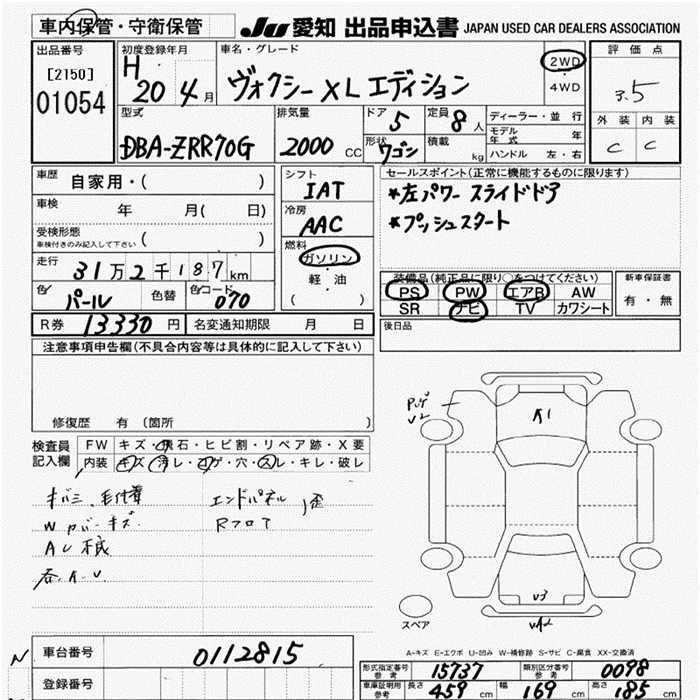 車内保管・守衛保管 JU 愛知 出品申込書 JAPAN USED CAR DEALERS ASSOCIATION
出品番号 初度登録年月 車名・グレード 評価点
[2150] 01054 H 20 4月 ヴォクシー XL エディション 2WD・4WD 3.5
型式 排気量 ドア 5 定員 8人 ディーラー・並行 外装 内装
DBA-ZRR70G 2000 CC 形状 ワゴン 積載 kg モデル年式 年 C C
ハンドル 左・右
車歴 自家用・( ) シフト IAT セールスポイント(正常に機能するものに限ります)
車検 年 月( 日) 冷房 AAC *左パワースライドドア
受検形態 ( ) *プッシュスタート
車検付きのみ記入して下さい
走行 31万2千187km 燃料 ガソリン
色 パール 色替 色コード 070 軽・油 ( )
装備品(純正品に限り○をつけてください) 新車保証書
PS PW エアB AW 有・無
SR ナビ TV カワシート
R券 13330円 名変通知期限 月 日 後日品
注意事項申告欄(不具合内容等は具体的に記入して下さい)
修復歴 有 (箇所 )
検査員記入欄 FW キズ・飛石・ヒビ割・リペア跡・X要
内装 キズ・汚レ・コゲ・穴・スレ・キレ・破レ
エンドパネル
Rフロア 歪
A1
V3
スペア
A-キズ E-エクボ U-凹み W-補修跡 S-サビ C-腐食 XX-交換済
N 車台番号 0112815
登録番号
形式指定番号 参考 15737 類別区分番号 参考 0098
車庫証明用 参考 長さ 459 cm 幅 169 cm 高さ 185 cm